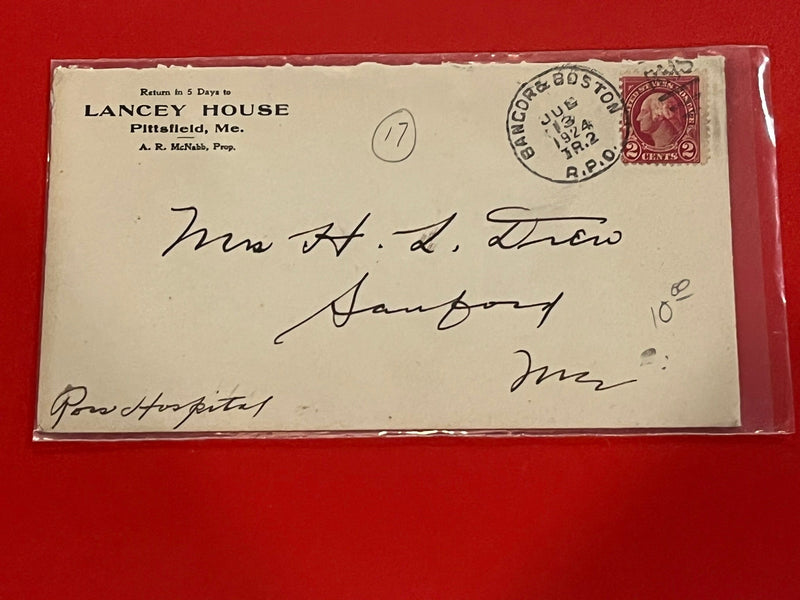 Return in 5 Days to
LANCEY HOUSE
Pittsfield, Me.
A. R. McNabb, Prop.
17
BANGOR & BOSTON
13
1924
TR.2
R.P.O.
UNITED STATES POSTAGE
2 CENTS 2
Mrs H. L. Drew
Sanford
Me
10 00
Hospital